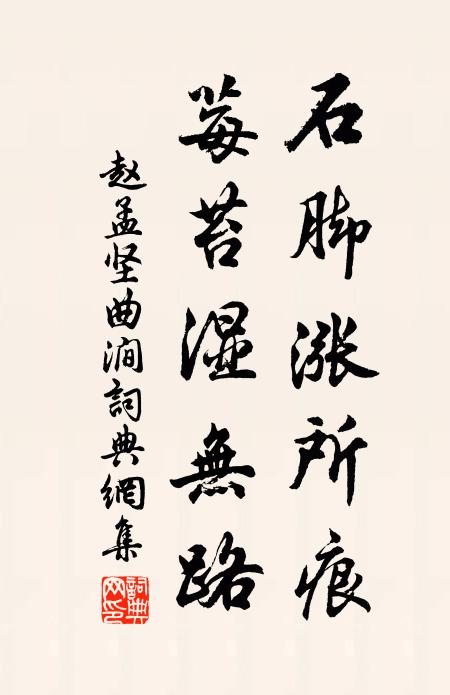 石脚涨所痕
莓苔湿無路
赵孟坚曲澗詞典網集
詞典网印